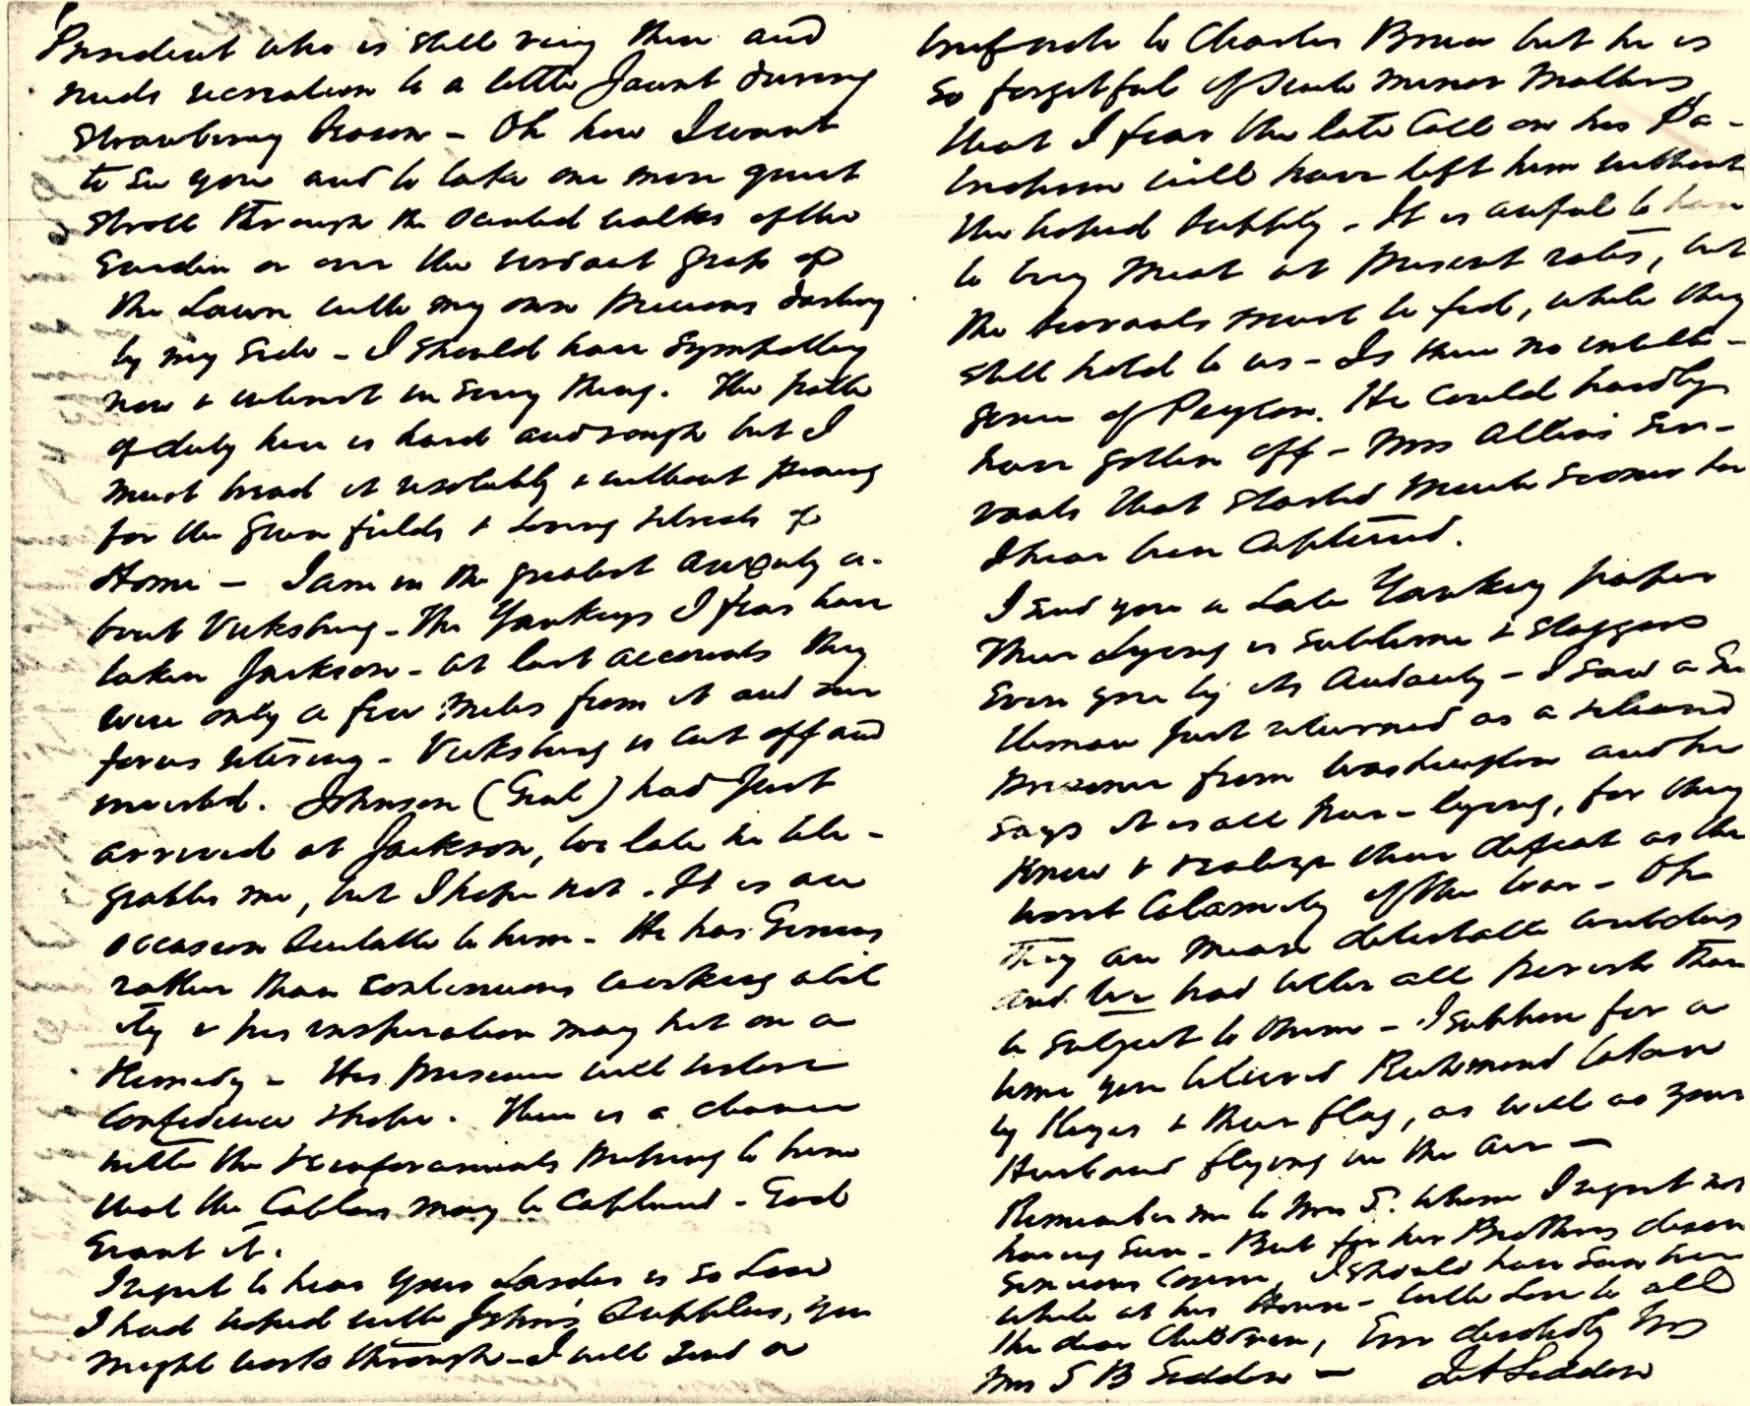 President who is still very thin and
needs recreation to a little Jaunt during
Strawberry Season - Oh how I want
to see you and to take one more quiet
stroll through the scented walks of the
Garden or over the verdant grass of
the Lawn with my own precious darling
by my side - I should have sympathy
now & interest in every thing. The path
of duty here is hard and rough but I
must tread it resolutely & without pining
for the Green fields & loving retreats of
Home - I am in the greatest anxiety a-
bout Vicksburg - The Yankeys I fear have
taken Jackson - at last accounts they
were only a few miles from it and our
forces retiring - Vicksburg is cut off and
invested. Johnson (Genl) had Just
arrived at Jackson, too late he tele-
graphs me, but I hope not. It is an
occasion suitable to him - He has Genius
rather than continuous working abil
ity & his inspiration may hit on a
Remedy - His presence will restore
Confidence & hope. There is a chance
with the reinforcements pushing to him
that the Captors may be Captured - God
Grant it.
I regret to hear your Larder is so Low
I had hoped with John's Supplies, you
might worry through - I will send a
brief note to Charles Bruce but he is
so forgetful of such minor matters
that I fear the late Call on his Pa-
triotism will have left him without
the hoped supply - It is awful to have
to buy meat at present rates, but
the servants must be fed, while they
still hold to us - Is there no intelli-
gence of Peyton. He could hardly
have gotten off - Mrs Allens Ser-
vants that started much sooner have
I hear been Captured.
I send you a Late Yankey paper
Their Lying is sublime & staggers
Even you by its Audacity - I saw a Gen
tleman just returned as a released
Prisoner from Washington and he
says it is all pure lying, for they
knew & realize their defeat as the
worst Calamity of the War - Oh
They are mean detestable
and we had better all perish than
be subject to them - I suppose for a
time you believed Richmond taken
by Keyes & their flag, as well as your
Husband flying in the air -
Remember me to Mrs S. whom I regret not
having seen - But for her Brothers
I should have seen her
while at his House - With Love to all
the dear Children, Ever devotedly Yrs
Mrs S B Seddon - J A Seddon